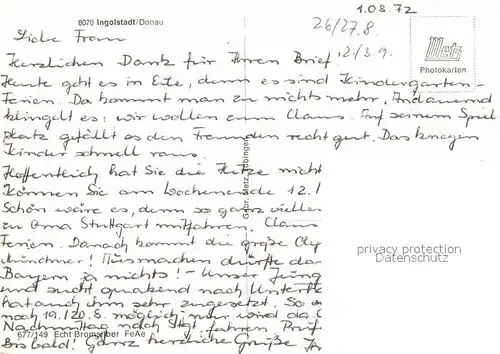 1.08.72
8070 Ingolstadt/Donau
26/27.8.
2/3.9.
Liebe Frau
Metz
Photokarten
Herzlichen Dank für Ihren Brief!
Heute geht es in Eile, denn es sind Kindergarten-
Ferien. Da kommt man zu nichts mehr. Andauernd
klingelt es: wir wollen zum Claus. Auf seinem Spiel
platz gefällt es den Freunden recht gut. Das kriegen
Kinder schnell raus.
Hoffentlich hat Sie die Hitze nicht
Können Sie am Wochenende 12./
Schön wäre es, denn so ganz
zu Oma Stuttgart mitfahren. Claus
Ferien. Danach kommt die große Oly
München! Ausmachen dürfte da
Bayern ja nichts! - Unser Junge
und sucht quakend nach Unterha
hat auch ihm sehr zugesetzt. So
noch 19./20.8. möglich, nur wird da
Nachmittag nach Stgt. fahren
Bis bald! Ganz herzliche Grüße Ih
Gebr. Metz, Tübingen
privacy protection
Datenschutz
677/149 Echt Bromsilber FeAe